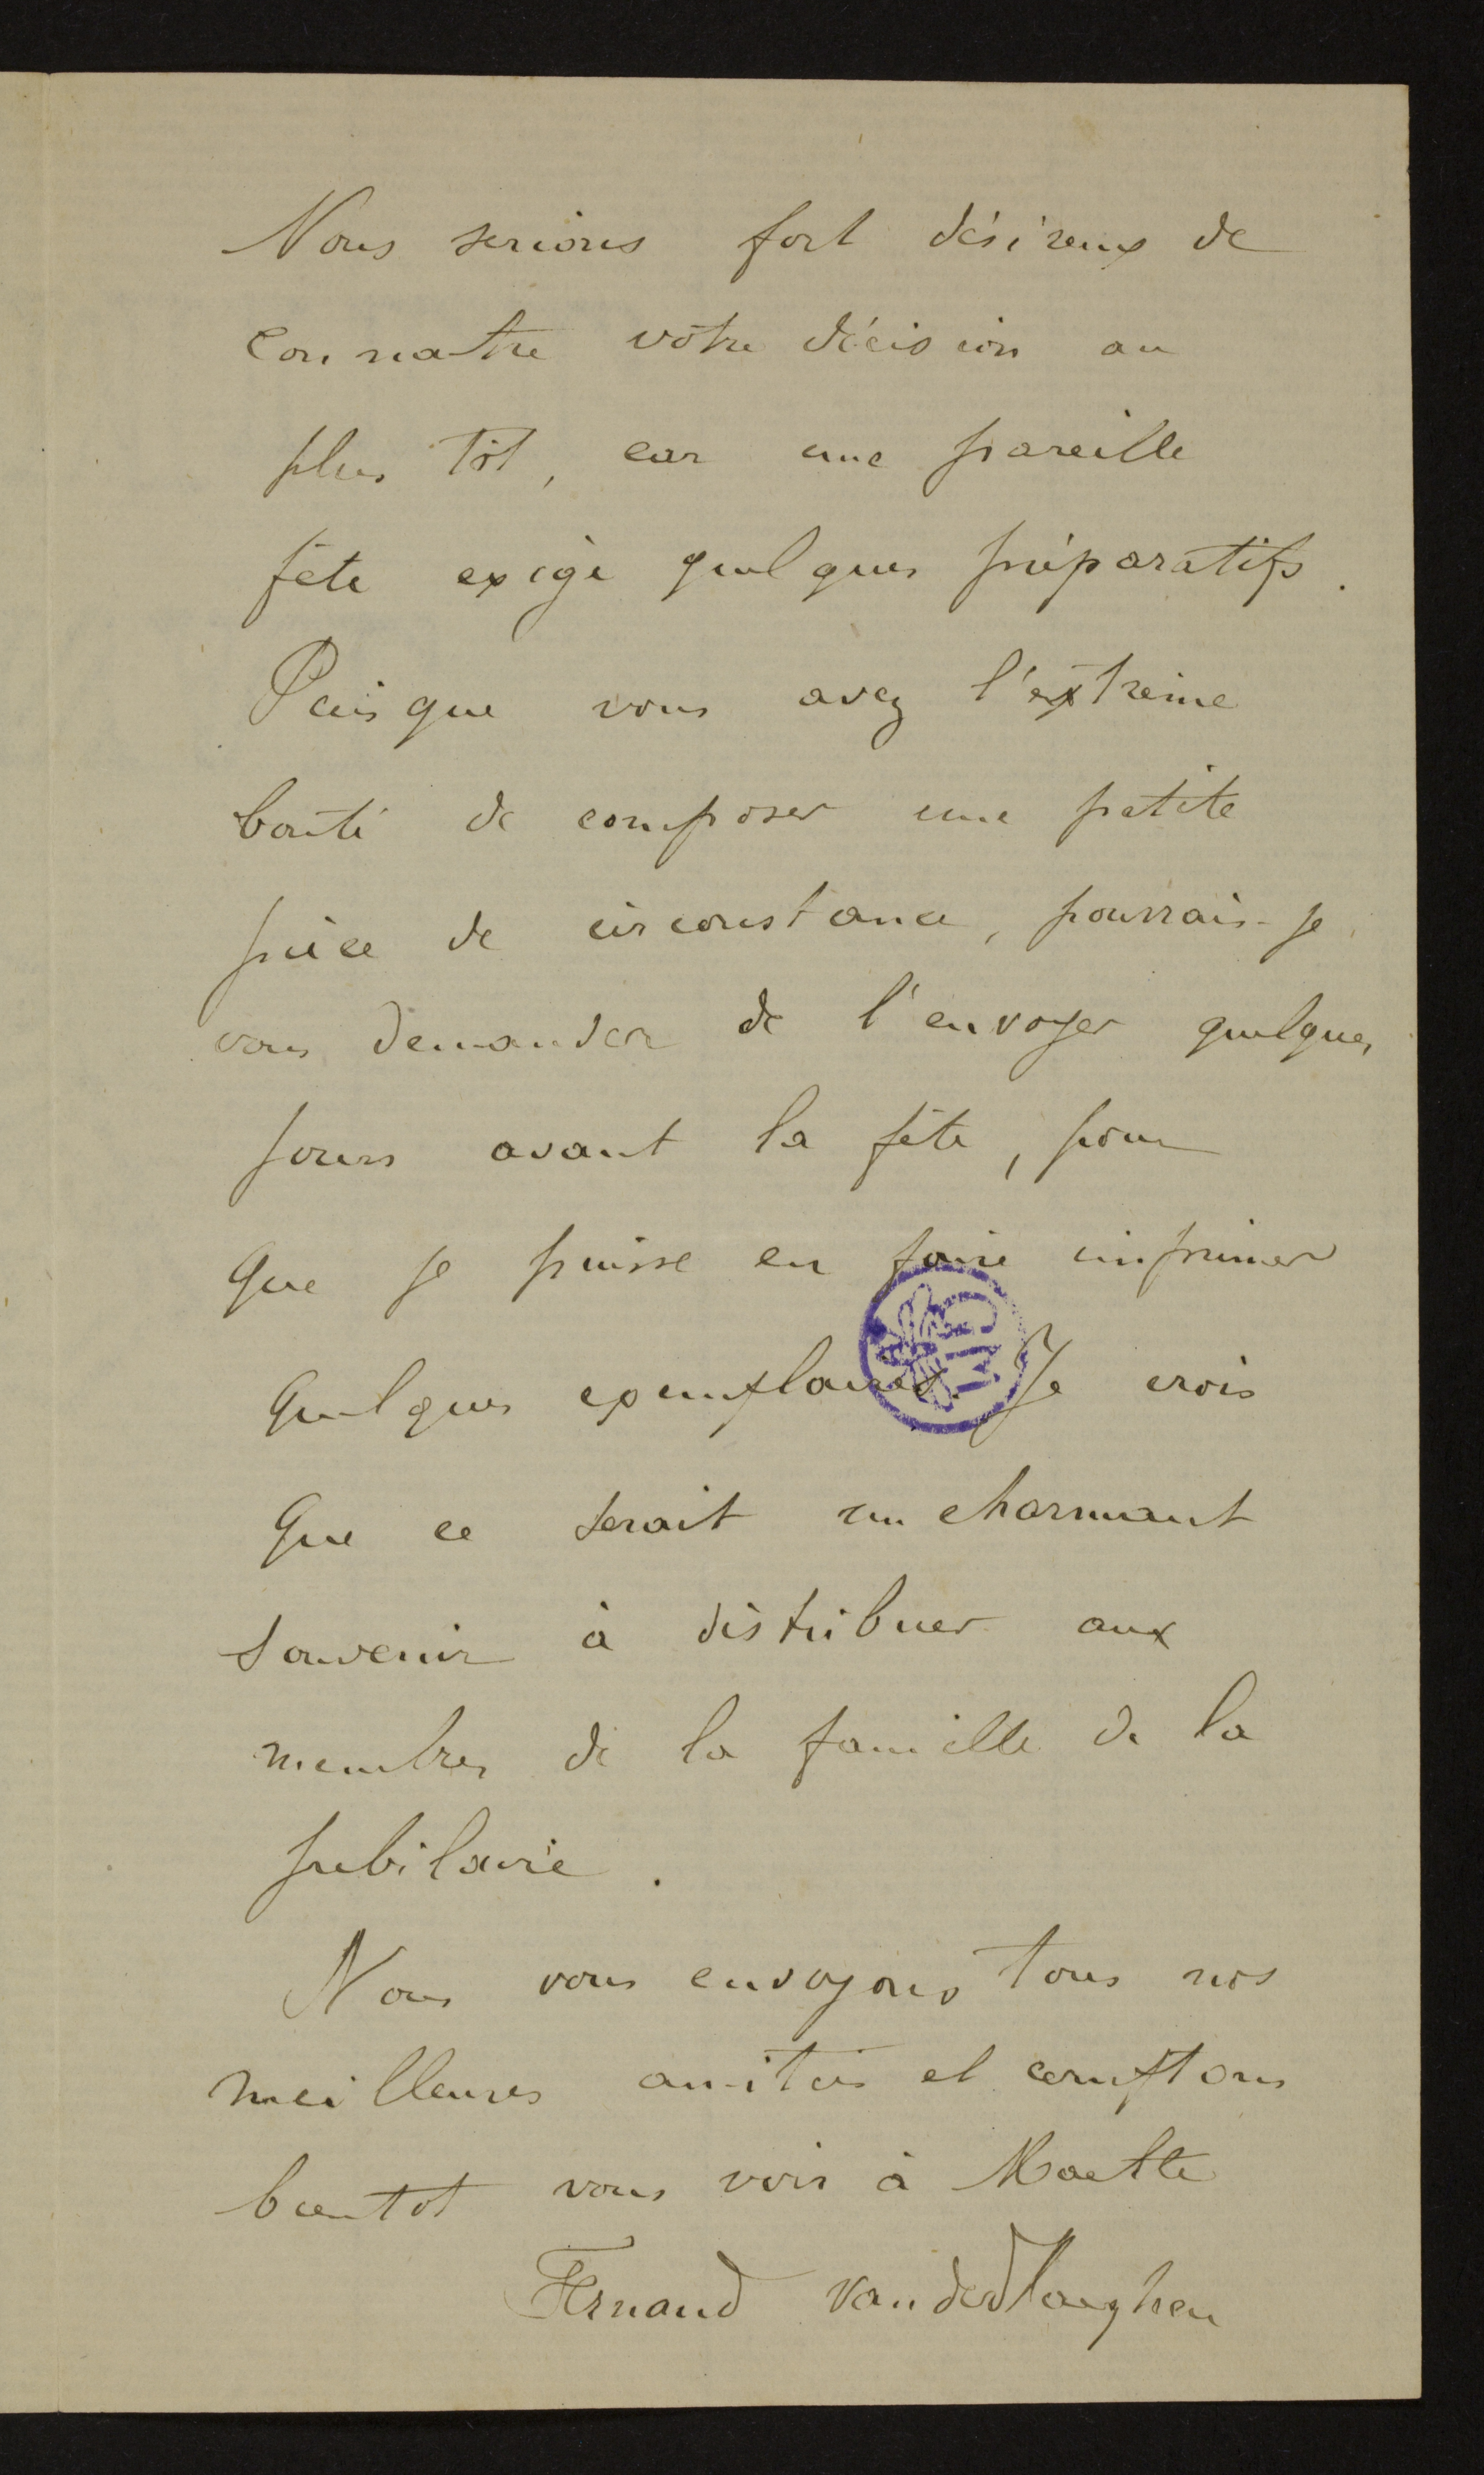 Nous serions fort désireux de
connatre vôtre décision au
plus tôt, car une pareille
fête exige quelques préparatifs.
Puisque vous avez l'extreme
bonté de composer une petite
pièce de circonstance, pourrais-je
vous demander de l'envoyer quelques
jours avant la fête, pour
que je puisse en faire imprimer
quelques exemplaires. Je crois
que ce serait un charmant
souvenir à distribuer aux
membres de la famille de la
jubilaire.
Nous vous envoyons tous nos
meilleures amitiés et comptons
bientot vous voir à
Fernand vanderHaeghen